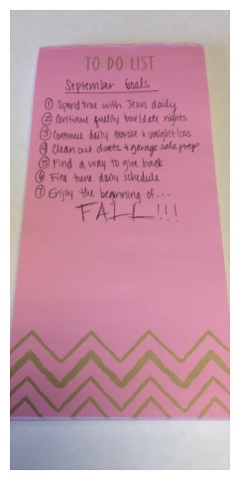 TO DO LIST
September Goals
① Spend time with Jesus daily
② Continue quality time/date nights
③ Continue daily exercise + weight loss
④ Clean out closets + garage sale prep
⑤ Find a way to give back
⑥ Fine tune daily schedule
⑦ Enjoy the beginning of...
FALL!!!